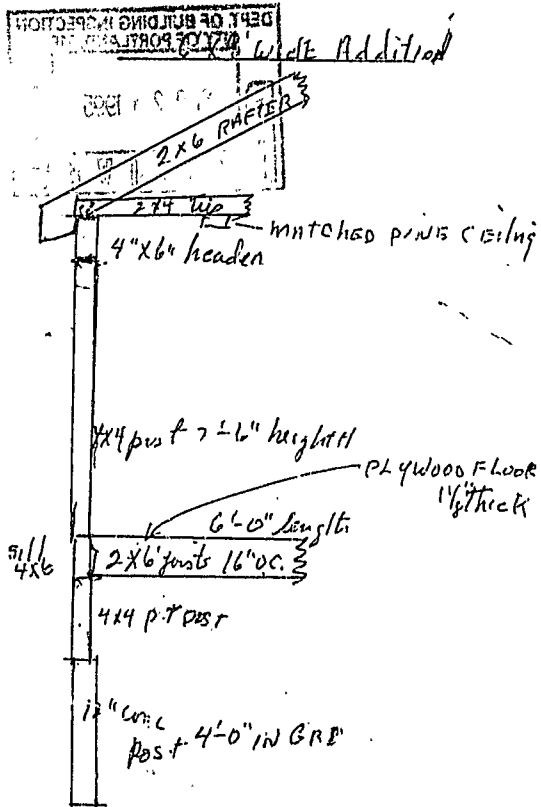 DEPT. OF BUILDING INSPECTION
CITY OF PORTLAND, ME
Wide Addition
1995
2x6 RAFTER
2x4
MATCHED PINE CEiling
4"x6" header
4x4 post 7'-6" heighth
PLYWOOD FLOOR
1⅛" thick
6'-0" length
Sill
4x6
2x6 joists 16" O.C.
4x4 P.T POST
conc
Post 4'-0" IN GRD